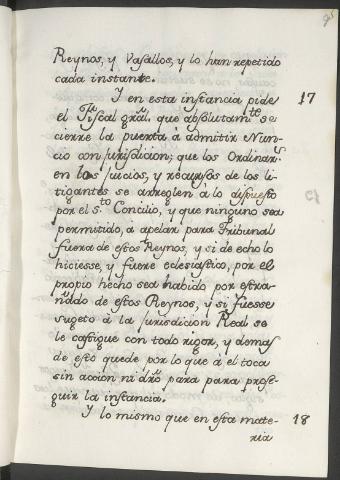 Reynos, y Vasallos, y lo han repetido
cada instante.
Y en esta instancia pide 17
el Fiscal gral. que absolutamte se
cierre la puerta à admitir Nun-
cio con jurisdicion; que los Ordinars.
en los juicios, y recursos de los li-
tigantes se arreglen à lo dispuesto
por el sto. Concilio, y que ninguno sea
permitido, a apelar para Tribunal
fuera de estos Reynos, y si de echo lo
hiciesse, y fuere eclesiastico, por el
propio hecho sea habido por estra-
ñado de estos Reynos, y si fuesse
sugeto à la jurisdicion Real se
le castigue con todo rigor, y demas
de esto quede por lo que à el toca
sin accion ni dro para para prose-
guir la instancia.
Y lo mismo que en esta mate- 18
ria